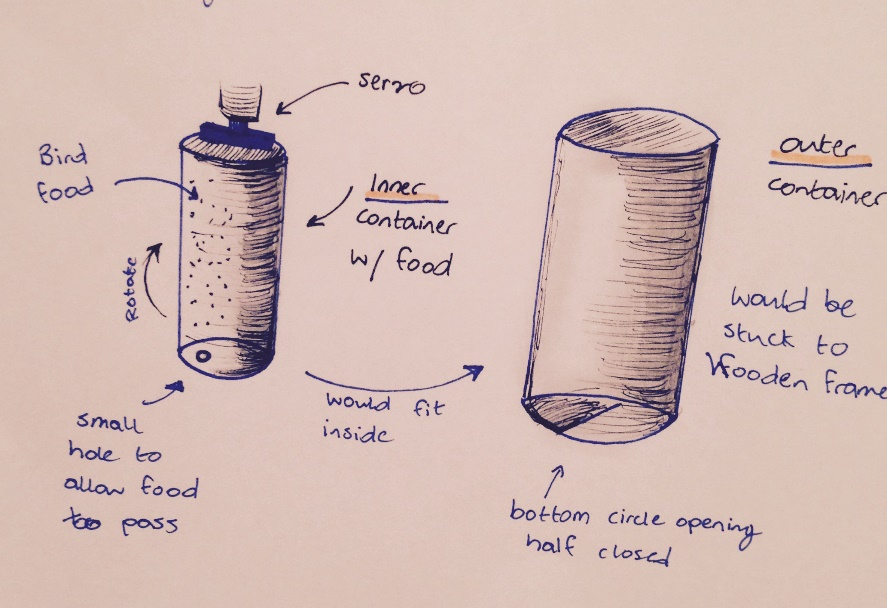 servo
Bird
food
Inner
container
w/ food
Rotate
small
hole to
allow food
too pass
would fit
inside
outer
container
would be
stuck to
Wooden frame
bottom circle opening
half closed